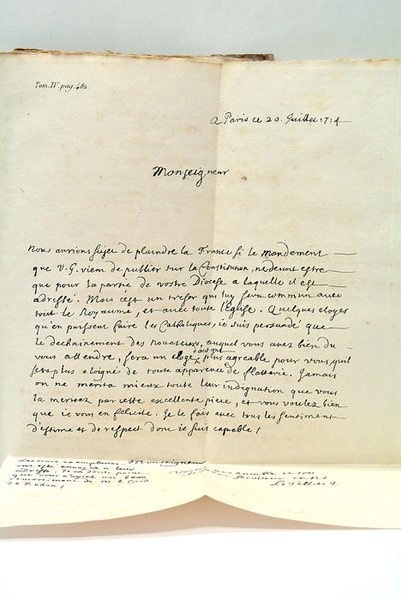 Tom. IV. pag. 480.
a Paris ce 20. Juillet 1714
Monseigneur
Nous aurions sujet de plaindre la France si le mandement
que V.G. vient de publier sur la Constitution, ne devoit estre
que pour la partie de vostre Diocese a laquelle il est
adressé. Mais c'est un tresor qui luy sera commun avec
tout le Royaume, et avec toute l'Eglise. Quelques eloges
qu'en puissent faire les Catholiques, ie suis persuadé que
le dechainement des Novateurs, auquel vous avez bien du
vous attendre, sera un eloge d'autant plus agreable pour vous qu'il
sera plus eloigné de toute apparence de flatterie. Jamais
on ne merita mieux toute leur indignation que vous
la meritez par cette excellente piece, et vous voulez bien
que ie vous en felicite. Je le fais avec tous les sentimens
d'estime et de respect dont ie suis capable!
Monseigneur
ont esté envoyez a leur
humble et tres
Le Tellier J.